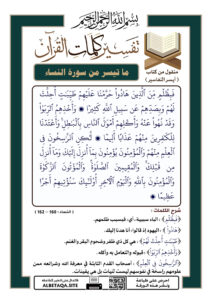 بسم الله الرحمن الرحيم
تفسير كلمات القرآن
منقول من كتاب
(أيسر التفاسير)
ما تيسر من سورة النساء
فَبِظُلْمٍ مِّنَ الَّذِينَ هَادُوا حَرَّمْنَا عَلَيْهِمْ طَيِّبَاتٍ أُحِلَّتْ
لَهُمْ وَبِصَدِّهِمْ عَن سَبِيلِ اللَّهِ كَثِيرًا وَأَخْذِهِمُ الرِّبَوٰا
وَقَدْ نُهُوا عَنْهُ وَأَكْلِهِمْ أَمْوَالَ النَّاسِ بِالْبَاطِلِ وَأَعْتَدْنَا
لِلْكَافِرِينَ مِنْهُمْ عَذَابًا أَلِيمًا لَّٰكِنِ الرَّاسِخُونَ فِي
الْعِلْمِ مِنْهُمْ وَالْمُؤْمِنُونَ يُؤْمِنُونَ بِمَا أُنزِلَ إِلَيْكَ وَمَا أُنزِلَ
مِن قَبْلِكَ وَالْمُقِيمِينَ الصَّلَوٰةَ وَالْمُؤْتُونَ الزَّكَوٰةَ
وَالْمُؤْمِنُونَ بِاللَّهِ وَالْيَوْمِ الْآخِرِ أُولَٰئِكَ سَنُؤْتِيهِمْ أَجْرًا
عَظِيمًا
(النساء: 160 - 162)
شرح الكلمات:
{فَبِظُلْمٍ}: الباء سببية، أي: فبسبب ظلمهم.
{هَادُوا}: اليهود إذ قالوا: إنا هدنا إليك.
{طَيِّبَاتٍ أُحِلَّتْ لَهُمْ}: هي كل ذي ظفر وشحوم البقر والغنم.
{وَأَخْذِهِمُ الرِّبَا}: قبوله والتعامل به وأكله.
{الرَّاسِخُونَ فِي الْعِلْمِ}: أصحاب القدم الثابتة في معرفة الله وشرائعه ممن
علومهم راسخة في نفوسهم ليست لدنيات بل هي يقينيات.
ALBETAQA.SITE